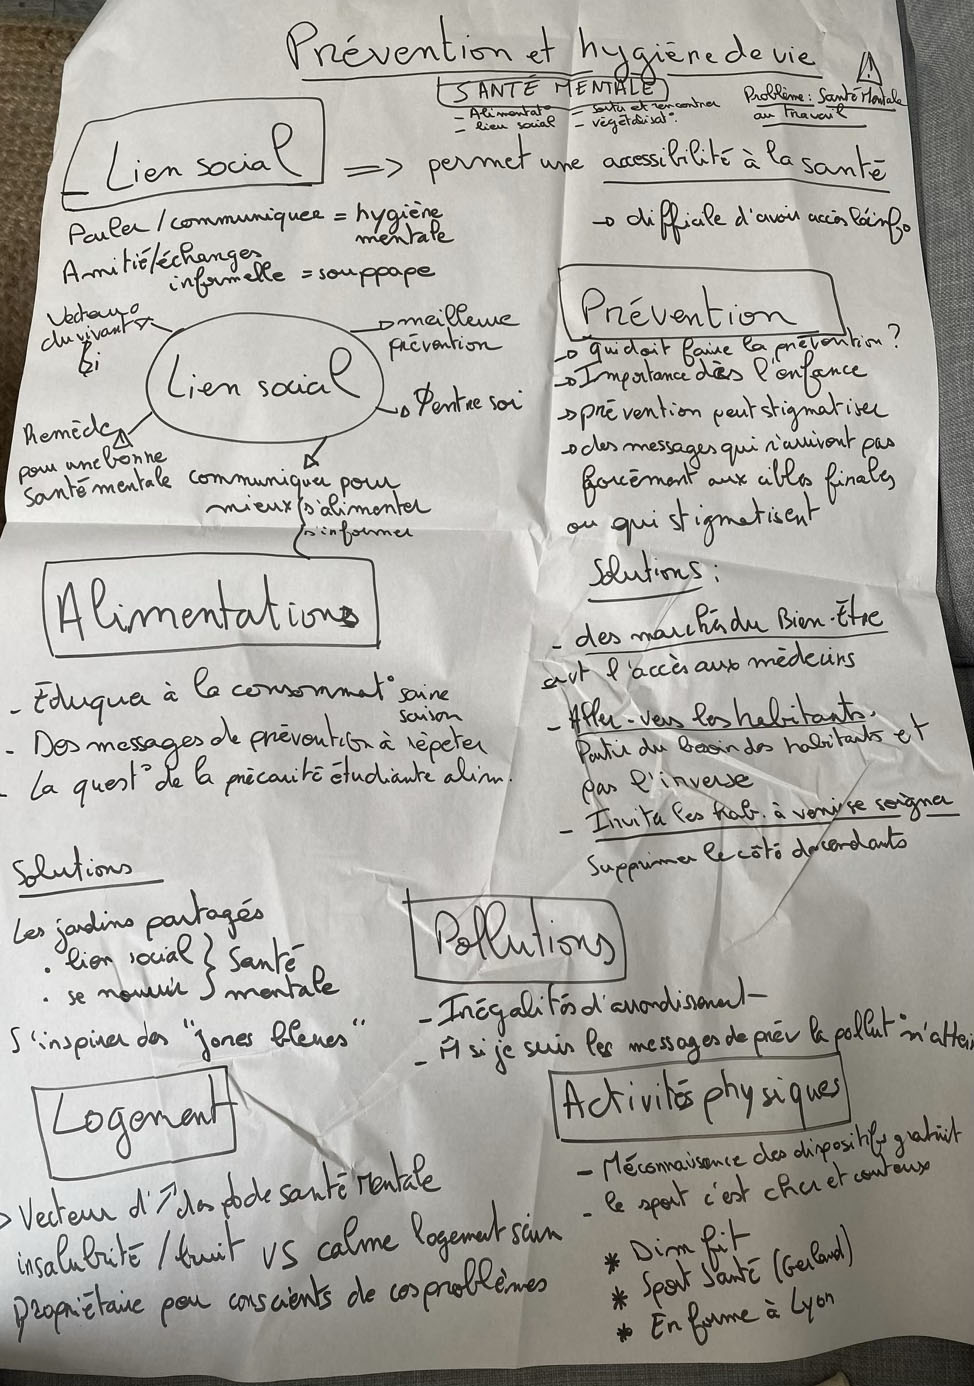 Prévention et hygiène de vie
SANTÉ MENTALE
- Alimentat° - sortir et rencontrer
- lien social - végétalisat°
⚠ Problème : Santé Mentale
au travail
- Lien social => permet une accessibilité à la santé
→ difficile d'avoir accès à l'info
Parler/communiquer = hygiène
mentale
Amitié/échanges
informelle = souppape
Lien social
Vecteur
du vivant
bi
→ meilleure
prévention
→ Ø entre soi
Remède
pour une bonne
Santé mentale
communiquer pour
mieux s'alimenter
s'informer
Prévention
→ qui doit faire la prévention ?
→ Importance dès l'enfance
→ prévention peut stigmatiser
→ des messages qui n'arrivent pas
forcément aux cibles finales
ou qui stigmatisent
Solutions :
- des marchés du Bien-Être
avt l'accès aux médecins
- Aller-vers les habitants.
Partir du besoin des habitants et
pas l'inverse
- Inviter les hab. à venir se soigner
Supprimer le côté descendants
Alimentations
- Éduquer à la consommat° saine
saison
- Des messages de prévention à répéter
- La quest° de la précarité étudiante alim.
Solutions
Les jardins partagés
• lien social } Santé
• se nourrir } mentale
S'inspirer des "zones bleues"
Pollutions
- Inégalités d'arrondissement
- M si je suis les messages de prév la pollut° m'attei
Logement
> Vecteur d'↗ des pb de santé Mentale
insalubrité / bruit VS calme logement sain
Propriétaire peu conscients de ces problèmes
Activités physiques
- Méconnaisence des dispositifs gratuit
- le sport c'est cher et couteux
* Dim fit
* Sport Santé (Gerland)
* En forme à Lyon